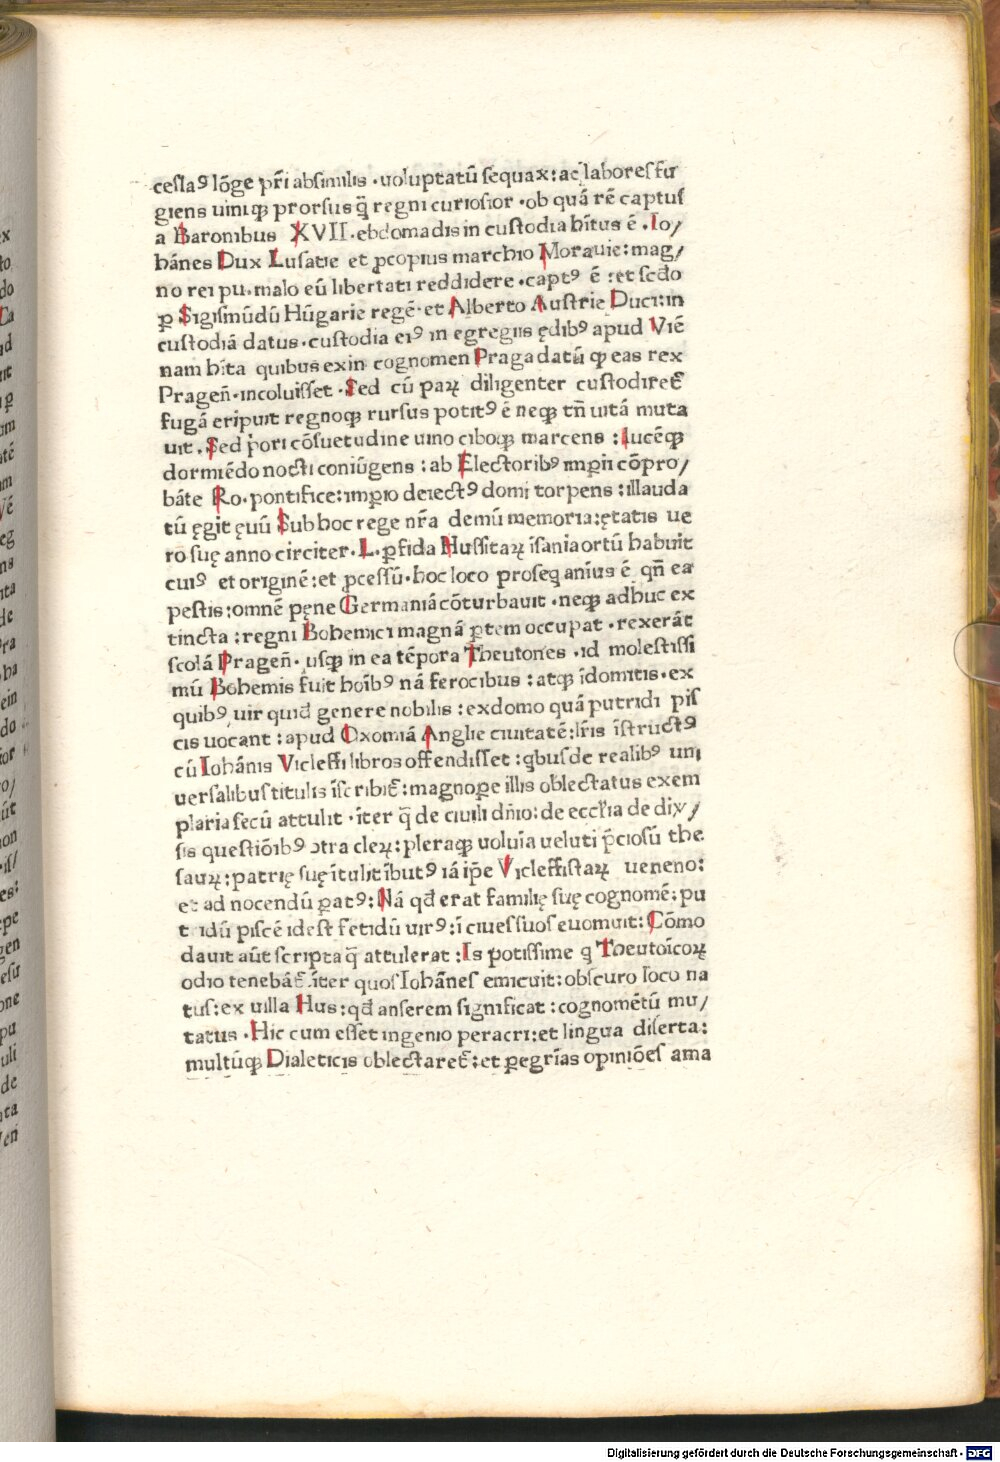 ceslaꝰ lōge pr̄i absimilis ·uoluptatū sequax: ac labores fu
giens uiniqꝫ prorsus q̄ regni curiosior ·ob quā rē captus
a Baronibus XVII·ebdomadis in custodia hītus ē ·Io/
hānes Dux Lusatie et ꝓcopius marchio Morauie: mag/
no rei pu·malo eū libertati reddidere ·captꝰ ē :et scdo
ꝑ Sigismūdū Hūgarie regē· et Alberto Austrie Duci:in
custodiā datus ·custodia eiꝰ in egregiis ędibꝰ apud Viē
nam hīta quibus exin cognomen Praga datū qꝫ eas rex
Pragen̄·incoluisset ·Sed cū paꝝ diligenter custodiret̄
fugā eripuit regnoqꝫ rursus potitꝰ ē neqꝫ tn̄ uitā muta
uit ·Sed pori cōsuetudine uino ciboqꝫ marcens :lucēqꝫ
dormiēdo nocti coniūgens :ab Electoribꝰ imꝑii cōpro/
bāte Ro·pontifice:imꝑio deiectꝰ domi torpens :illauda
tū ęgit ęuū Sub hoc rege nr̄a demū memoria:ętatis ue
ro suę anno circiter ·L·ꝑfida Hussitaꝝ īsania ortū habuit
cuiꝰ et originē:et ꝓcessū·hoc loco proseq anīus ē qn̄ ea
pestis:omnē pęne Germaniā cōturbauit ·neqꝫ adhuc ex
tincta :regni Bohemici magnā ꝑtem occupat ·rexerāt
scolā Pragen̄·usqꝫ in ea tēpora Theutones ·id molestissi
mū Bohemis fuit hoībꝰ nā ferocibus :atqꝫ īdomitis·ex
quibꝰ uir quid genere nobilis :ex domo quā putridi pis
cis uocant :apud Oxomiā Anglie ciuitatē:lr̄is īstructꝰ
cū Iohānis Vicleffi libros offendisset :qbus de realibꝰ uni
uersalibus titulis īscribit̄:magnoꝑe illis oblectatus exem
plaria secū attulit ·īter q̄ de ciuili dn̄io:de eccl̄ia de dix/
sis questiōibꝰ ꝯtra cleꝝ:pleraqꝫ uoluīa ueluti p̄ciosū the
sauꝝ:patrię suę ītulit ībutꝰ iā ip̄e Vicleffistaꝝ ueneno:
et ad nocendū ꝑatꝰ:Nā qd̄ erat familię suę cognomē:pu
t idū piscē idest fetidū uirꝰ:ī ciues suos euomuit:Cōmo
dauit aūt scripta q̄ attulerat :Is potissime q Theutoīcoꝝ
odio tenebāt̄ īter quos Iohānes emicuit:obscuro loco na
tus:ex uilla Hus:qd̄ anserem significat :cognomētū mu/
tatus ·Hic cum esset ingenio peracri:et lingua diserta:
multūqꝫ Dialeticis oblectaret̄:et ꝑegrīas opiniōes ama
Digitalisierung gefördert durch die Deutsche Forschungsgemeinschaft - DFG